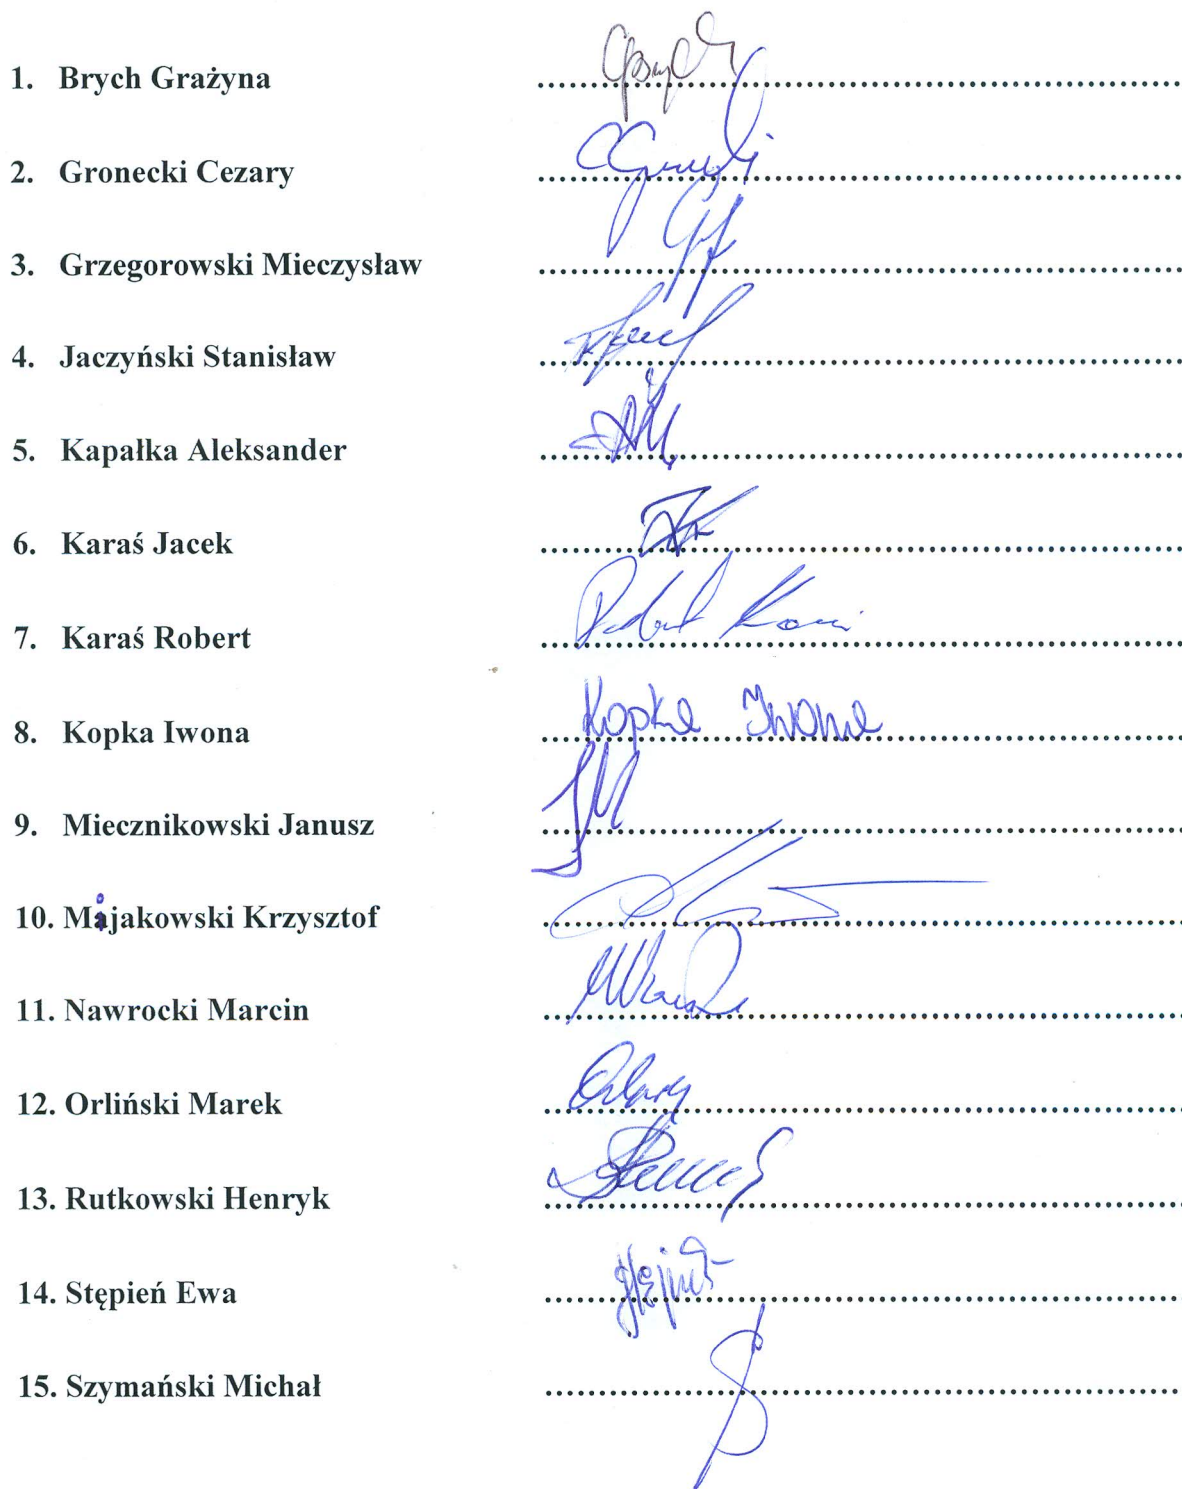 1. Brych Grażyna ........................................
2. Gronecki Cezary ........................................
3. Grzegorowski Mieczysław ........................................
4. Jaczyński Stanisław ........................................
5. Kapałka Aleksander ........................................
6. Karaś Jacek ........................................
7. Karaś Robert ........................................ Robert Karaś
8. Kopka Iwona ........................................ Kopka Iwona
9. Miecznikowski Janusz ........................................
10. Mijakowski Krzysztof ........................................
11. Nawrocki Marcin ........................................
12. Orliński Marek ........................................
13. Rutkowski Henryk ........................................
14. Stępień Ewa ........................................
15. Szymański Michał ........................................